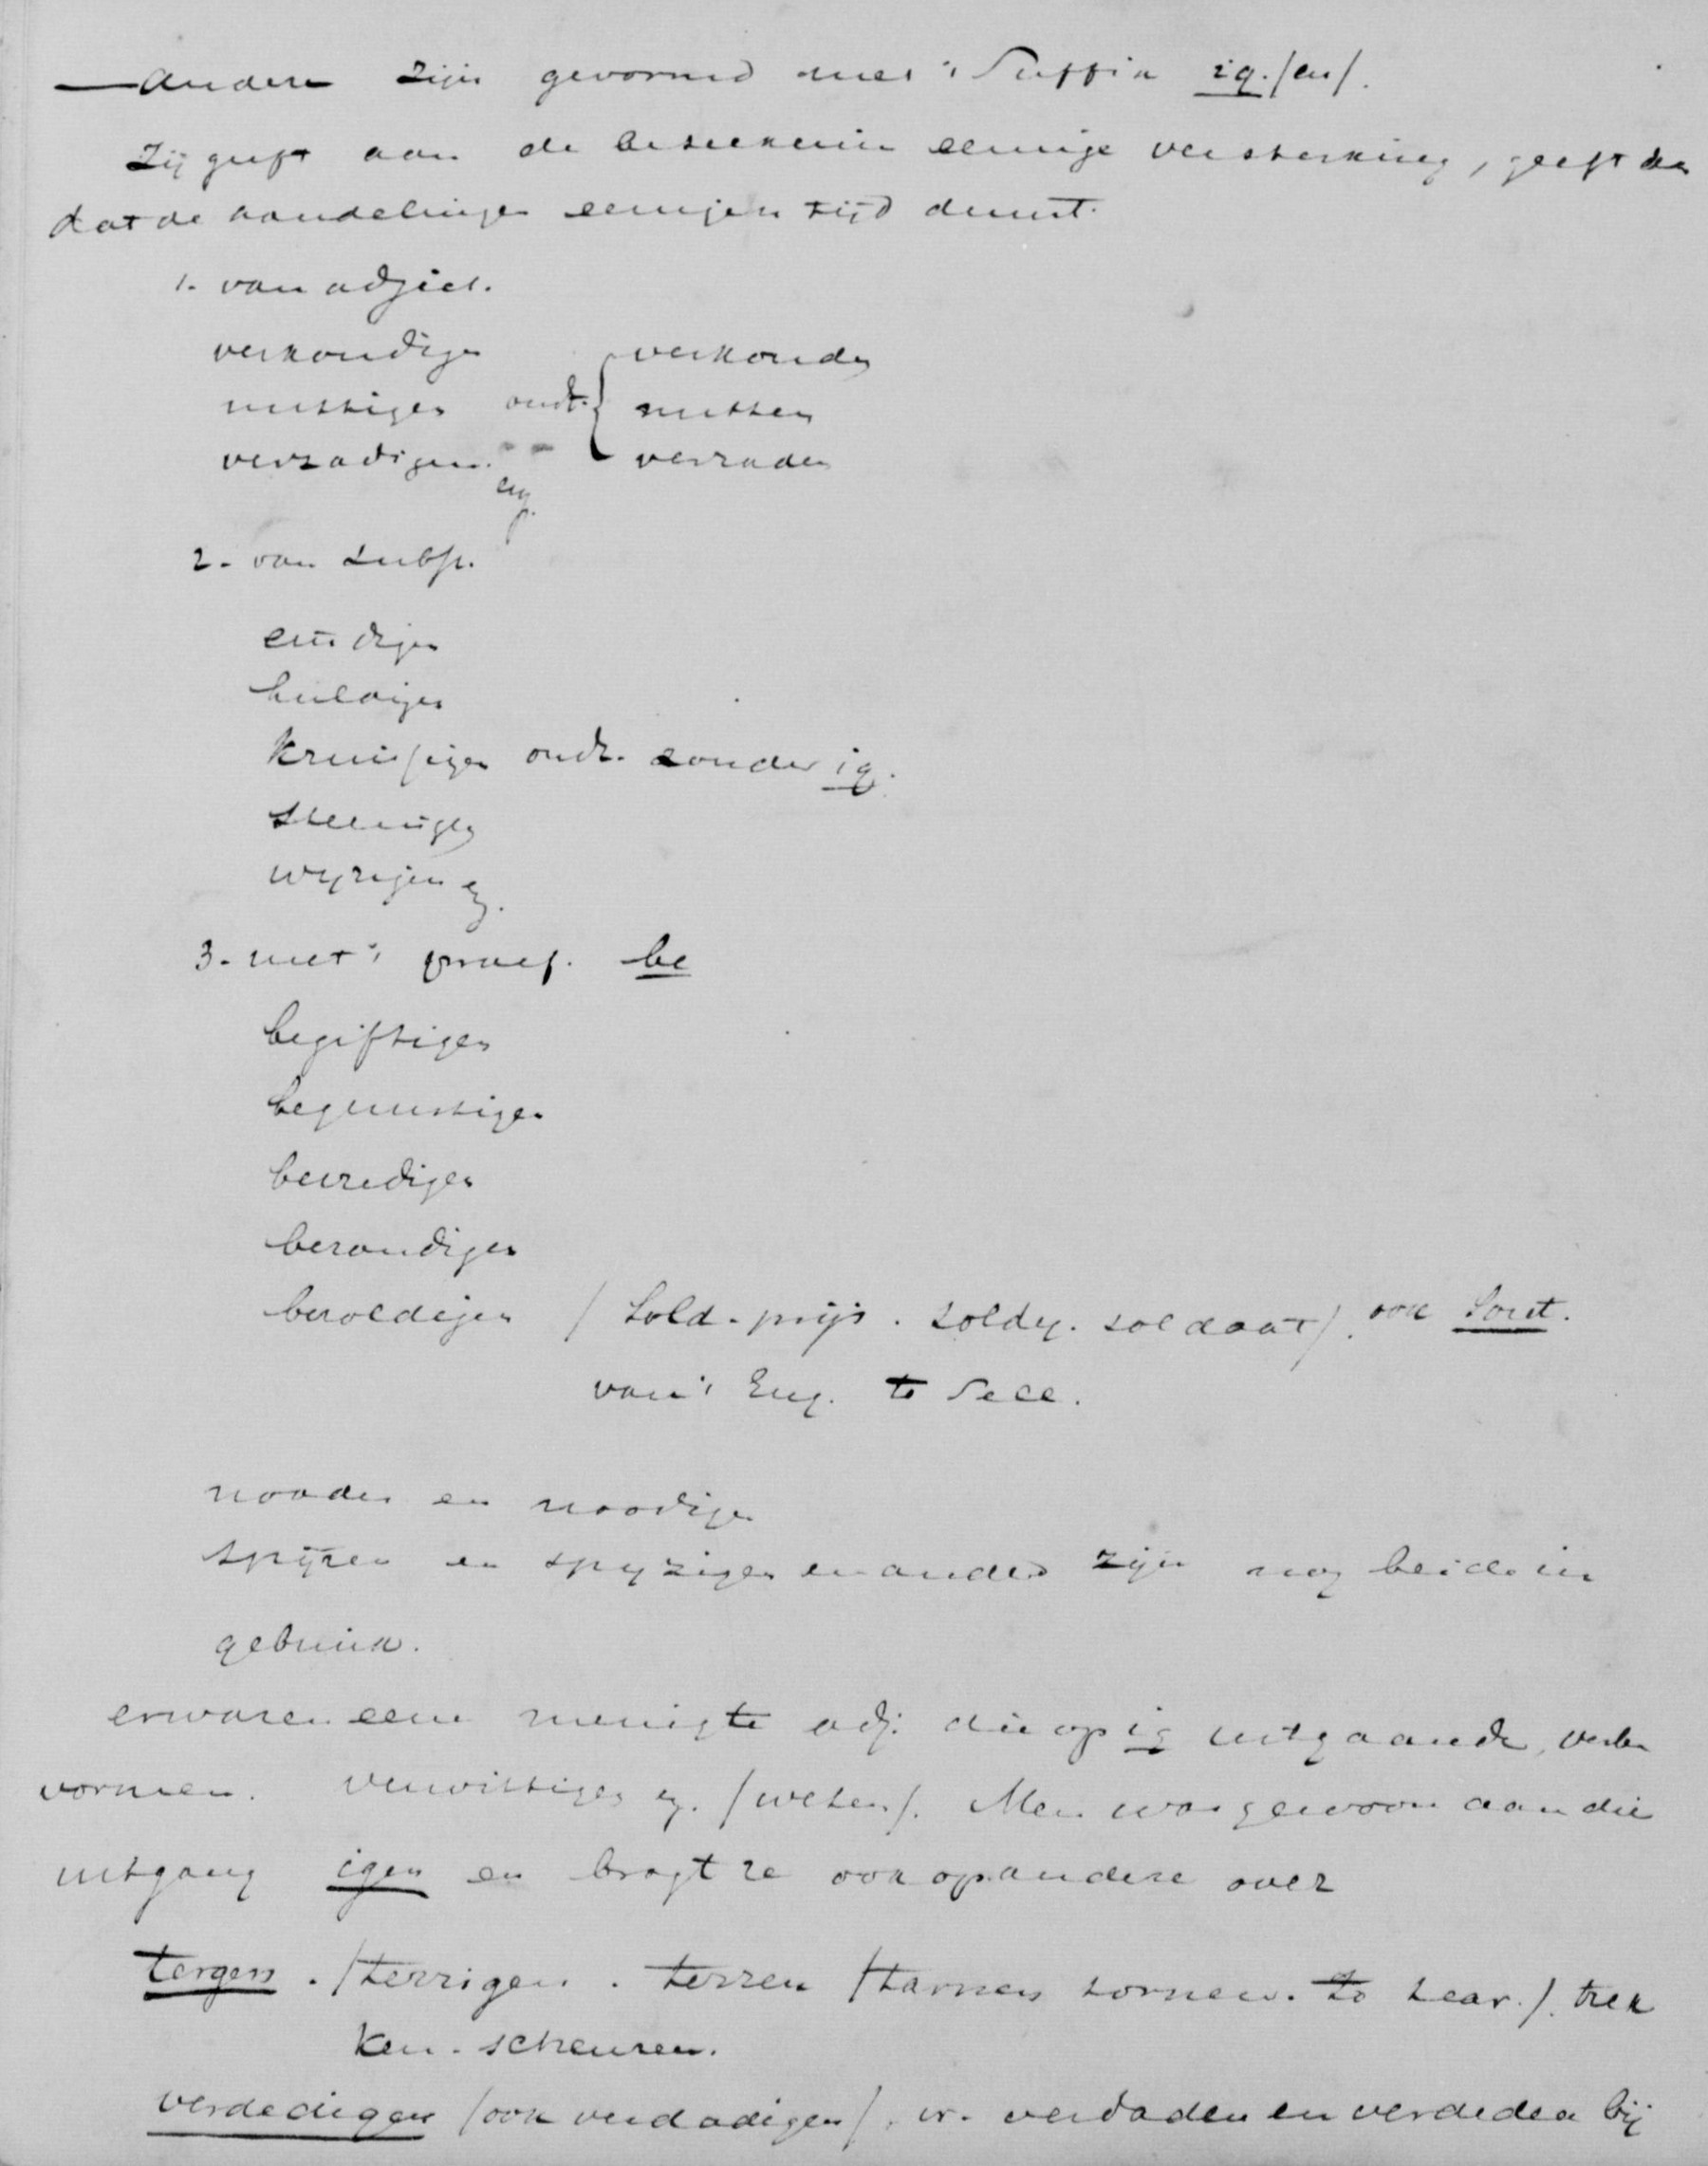 — andere zijn gevormd met 't Suffix ig./en/.
Zij geeft aan de beteekenis eenige versterking, geeft
dat de handelinge eenigen tijd duurt.
1. van adject.
verkondigen verkonden
nuttigen oudt. { nutten
verzadigen. verzaden
enz.
2. van subst.
eindigen
huldigen
kruisigen oudt. zonder ig.
steenigen
wijzigen enz.
3. met 't praef. be
begiftigen
begunstigen
bevredigen
bezondigen
bezoldigen / Sold. prijs. soldy. soldaat/. ook Sout.
van 't Eng. to Sell.
nooden en noodigen
spijzen en spijzigen en andere zijn nog beide in
gebruik.
er waren eene menigte adj. die op ig uitgaande, verba
vormen. verwittigen enz. /weten/. Men was gewoon aan die
uitgang igen en bragt ze ook op andere over
tergen. /terrigen. terren /tarnen tornen. to tear./. trek
ken. scheuren.
verdedigen /ook verdadigen/. v. verdaden en verdeden bij